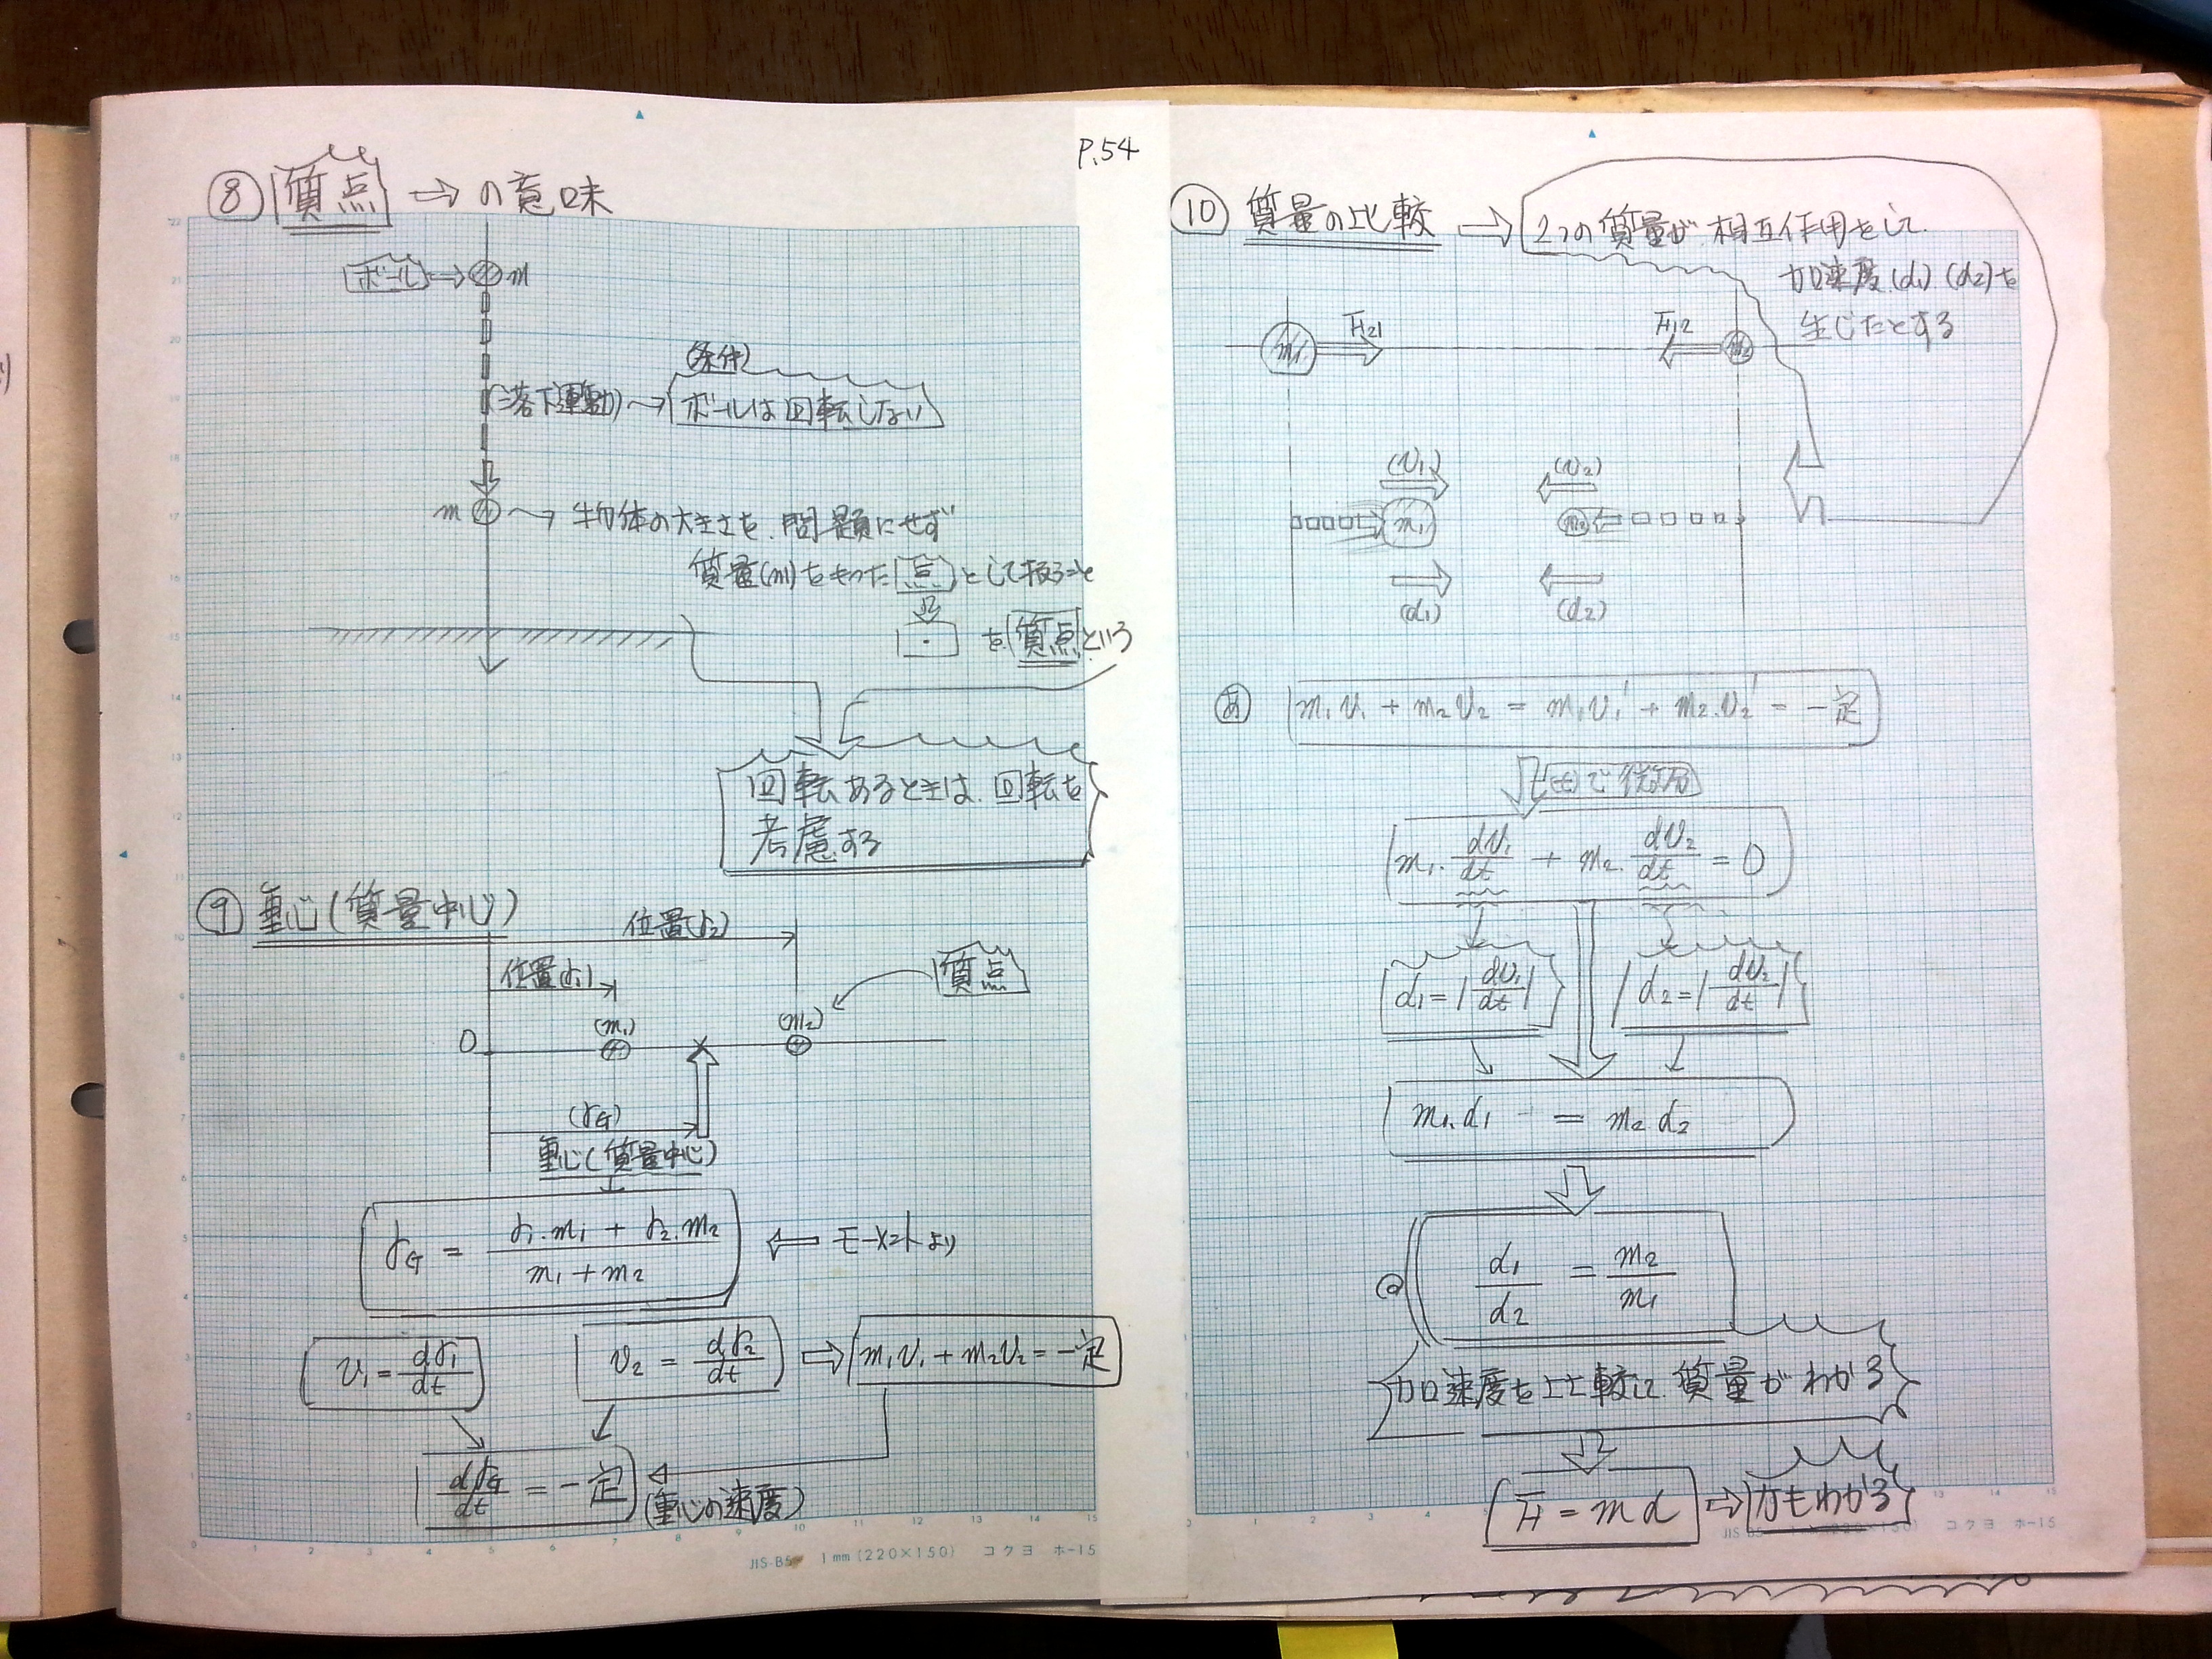 P.54
⑧ 質点 ⇒ の意味
ボール ⇒ m
(条件)
(落下運動) → ボールは回転しない
m → 物体の大きさを、問題にせず
質量(m)をもった 点 として扱うことを
質点 という
回転あるときは、回転を
考慮する
⑨ 重心(質量中心)
位置(r2)
位置(r1)
質点
(m1) (m2)
0
(rG)
重心(質量中心)
rG = (r1.m1 + r2.m2) / (m1 + m2) ⇐ モーメントより
v1 = dr1/dt
v2 = dr2/dt ⇒ m1v1 + m2v2 = 一定
drG/dt = 一定 (重心の速度)
JIS-B5 1mm (220×150) コクヨ ホ-15
⑩ 質量の比較 ⇒ 2つの質量が、相互作用をして、
加速度(α1).(α2)を
生じたとする
m1 F21 F12 m2
(v1) (v2)
m1 m2
(α1) (α2)
あ m1v1 + m2v2 = m1v1' + m2.v2' = 一定
(t)で微分
m1.dv1/dt + m2.dv2/dt = 0
α1=|dv1/dt| α2=|dv2/dt|
m1.α1 = m2.α2
α1/α2 = m2/m1
加速度を比較して、質量がわかる
F = mα ⇒ 力もわかる
コクヨ ホ-15